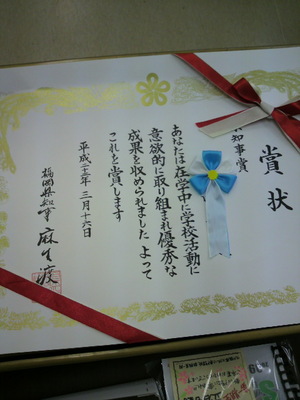 賞状
知事賞
あなたは在学中に学校活動に
意欲的に取り組まれ優秀な
成果を収められました よって
これを賞します
平成 年 三月十六日
福岡県知事 麻生渡